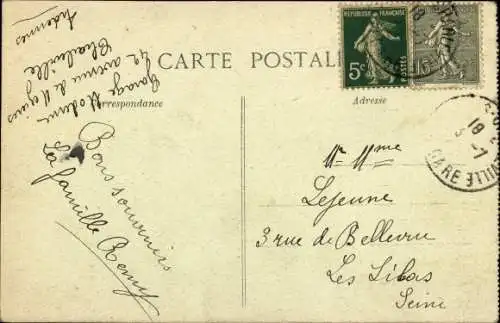 CARTE POSTALE
Correspondance
Adresse
Garage Moderne
42 avenue de
Charleville
Ardennes
Bons souvenirs
La famille Remy
RÉPUBLIQUE FRANÇAISE
5c
POSTES
15c
18
GARE
Mr Mme
Lejeune
3 rue de Bellevue
Les Lilas
Seine